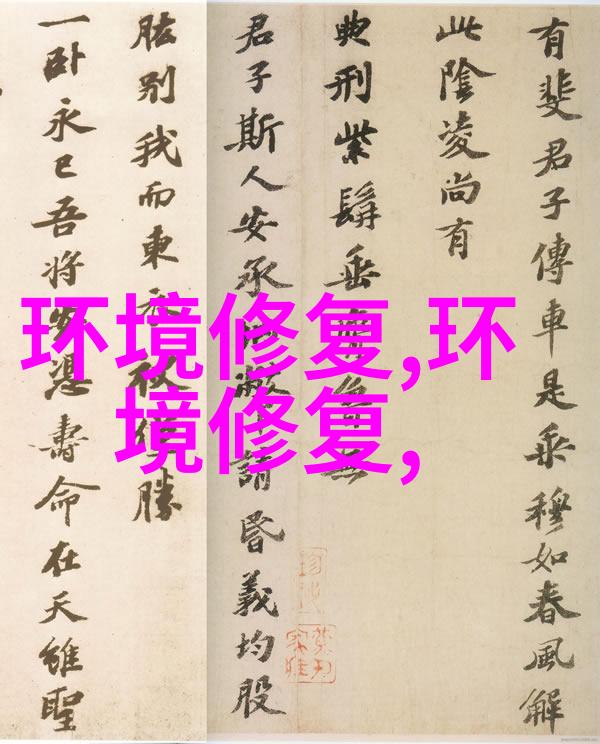 有斐君子傳車是乘穆如春風解
此陰凌尚有
典刑紫髯垂無
君子斯人安承請昏義均股
肱別我而東衣袂勝
一卧永已吾將安憑壽命在天雖聖
环境修复,环
境修复,